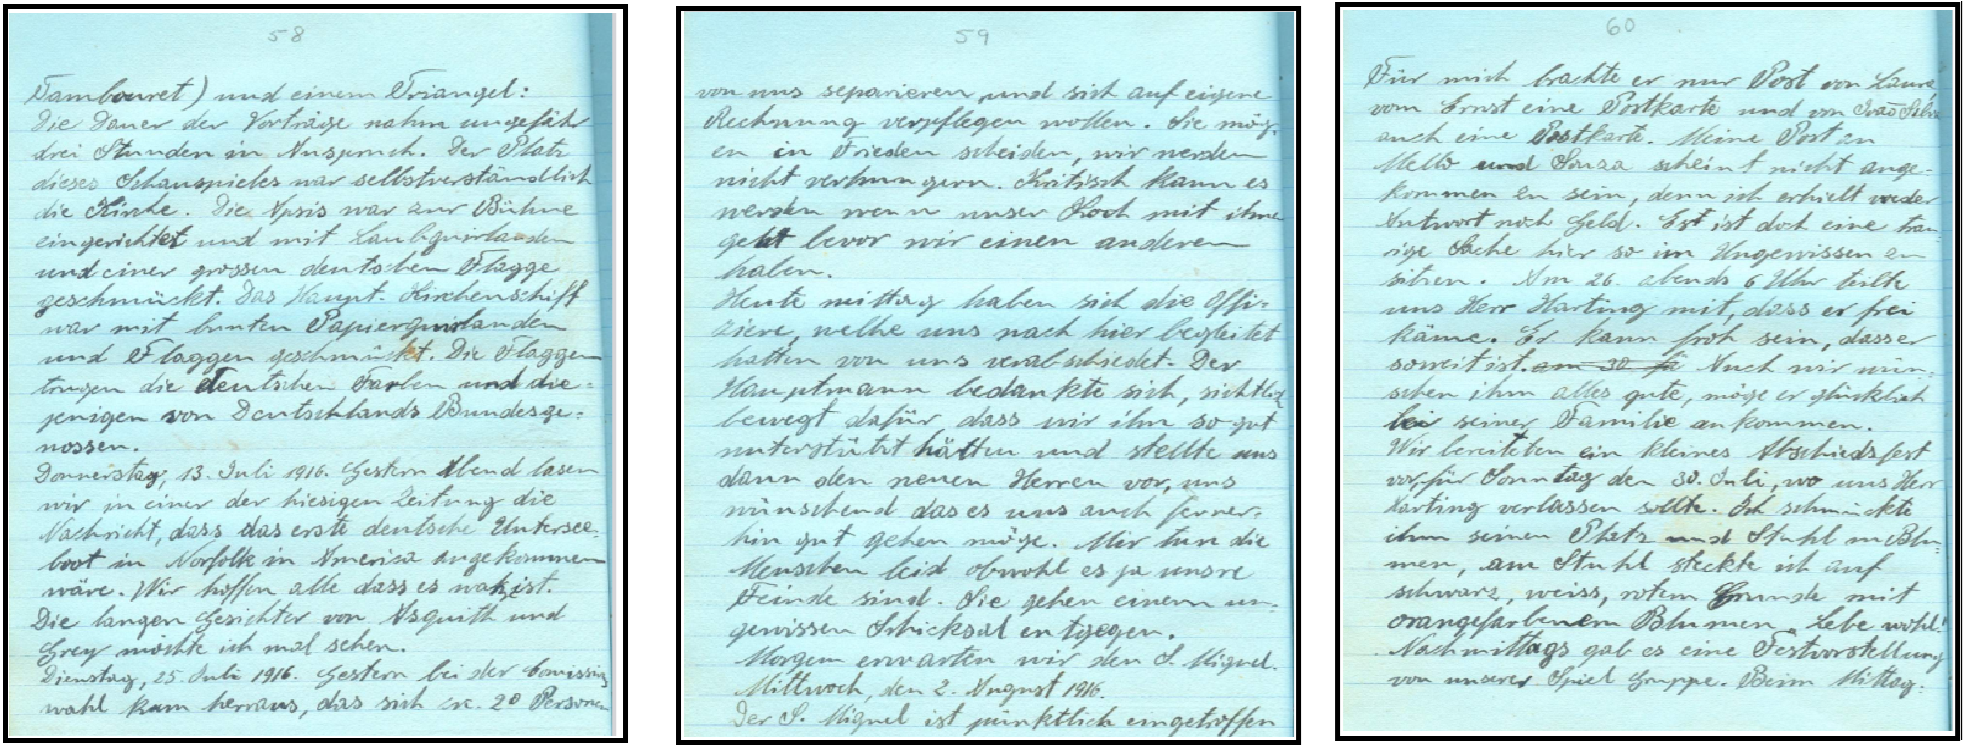 58
Tambouret) und einem Triangel:
Die Dauer der Vorträge nahm ungefähr
drei Stunden in Anspruch. Der Platz
dieses Schauspieles war selbstverständlich
die Kirche. Die Apsis war zur Bühne
eingerichtet und mit Laubguirlanden
und einer grossen deutschen Flagge
geschmückt. Das Haupt-Kirchenschiff
war mit bunten Papierguirlanden
und Flaggen geschmückt. Die Flaggen
trugen die deutschen Farben und die=
jenigen von Deutschlands Bundesge=
nossen.
Donnerstag, 13. Juli 1916. Gestern Abend lasen
wir in einer der hiesigen Zeitung die
Nachricht, dass das erste deutsche Untersee=
boot in Norfolk in America angekommen
wäre. Wir hoffen alle dass es wahr ist.
Die langen Gesichter von Asquith und
Grey möchte ich mal sehen.
Dienstag, 25. Juli 1916. Gestern bei der
wahl kam herraus, das sich ca. 20 Personen
59
von uns separieren und sich auf eigene
Rechnung verpflegen wollen. Sie mög-
en in Frieden scheiden, wir werden
nicht verhungern. Kritisch kann es
werden wenn unser Koch mit ihne
geht bevor wir einen anderen
haben.
Heute mittag haben sich die Offi-
ziere, welhe uns nach hier begleitet
hatten von uns verabschiedet. Der
Hauptmann bedankte sich, sichtlich
bewegt dafür dass wir ihn so gut
unterstützt hätten und stellte uns
dann den neuen Herren vor, uns
wünschend das es uns auch ferner-
hin gut gehen möge. Mir tun die
Menschen leid obwohl es ja unsre
Feinde sind. Sie gehen einem un-
gewissen Schicksal entgegen.
Morgen erwarten wir den S. Miguel.
Mittwoch, den 2. August 1916.
Der S. Miguel ist pünktlich eingetroffen
60
Für mich brachte er nur Post von Laura,
vom Ernst eine Postkarte und von
auch eine Postkarte. Meine Post an
Mello und Souza scheint nicht ange-
kommen zu sein, denn ich erhielt weder
Antwort noch Geld. Est ist doch eine trau-
rige Sache hier so im Ungewissen zu
sitzen. Am 26. abends 6 Uhr teilte
uns Herr Harting mit, dass er frei
käme. Er kann froh sein, dass er
soweit ist. am 30 Auch wir wün-
schen ihm alles gute, möge er glücklich
bei seiner Familie ankommen.
Wir bereiteten ein kleines Abschiedsfest
vor, für Sonntag den 30. Juli, wo uns Herr
Harting verlassen sollte. Ich schmückte
ihm seinen Platz und Stuhl m Blu-
men, am Stuhl steckte ich auf
schwarz, weiss, rotem Grunde mit
orangefarbenem Blumen „Lebe wohl!"
Nachmittags gab es eine Festvorstellung
von unserer Spiel Gruppe. Beim Mittag-